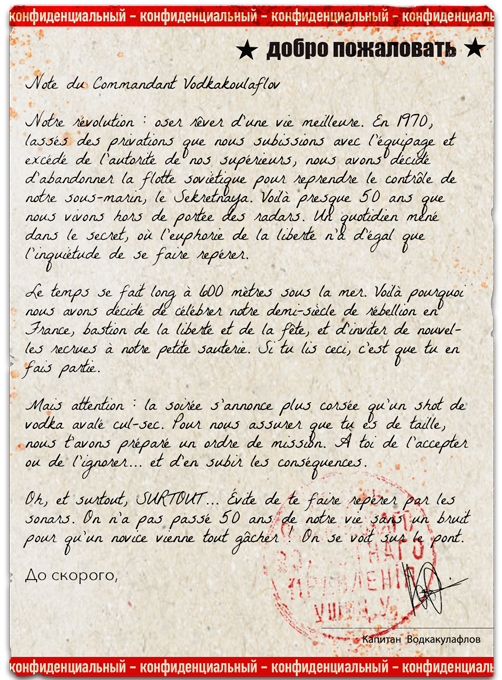 конфиденциальный – конфиденциальный – конфиденциальный – конфиденциальный
★ добро пожаловать ★
Note du Commandant Vodkakoulaflov
Notre révolution : oser rêver d'une vie meilleure. En 1970,
lassés des privations que nous subissions avec l'équipage et
excédé de l'autorité de nos supérieurs, nous avons décidé
d'abandonner la flotte soviétique pour reprendre le contrôle de
notre sous-marin, le Sekretnaya. Voilà presque 50 ans que
nous vivons hors de portée des radars. Un quotidien mené
dans le secret, où l'euphorie de la liberté n'a d'égal que
l'inquiétude de se faire repérer.
Le temps se fait long à 600 mètres sous la mer. Voilà pourquoi
nous avons décidé de célébrer notre demi-siècle de rébellion en
France, bastion de la liberté et de la fête, et d'inviter de nouvel-
les recrues à notre petite sauterie. Si tu lis ceci, c'est que tu en
fais partie.
Mais attention : la soirée s'annonce plus corsée qu'un shot de
vodka avalé cul-sec. Pour nous assurer que tu es de taille,
nous t'avons préparé un ordre de mission. A toi de l'accepter
ou de l'ignorer... et d'en subir les conséquences.
Oh, et surtout, SURTOUT... Évite de te faire repérer par les
sonars. On n'a pas passé 50 ans de notre vie sans un bruit
pour qu'un novice vienne tout gâcher ! On se voit sur le pont.
До скорого,
Капитан Водкакулафлов
конфиденциальный – конфиденциальный – конфиденциальный – конфиденциальный